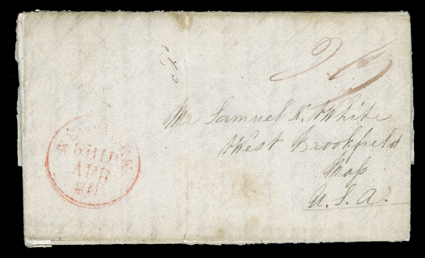 Mr Samuel N. White
West Brookfield
Mass
U.S.A.
SHIP
APR
28